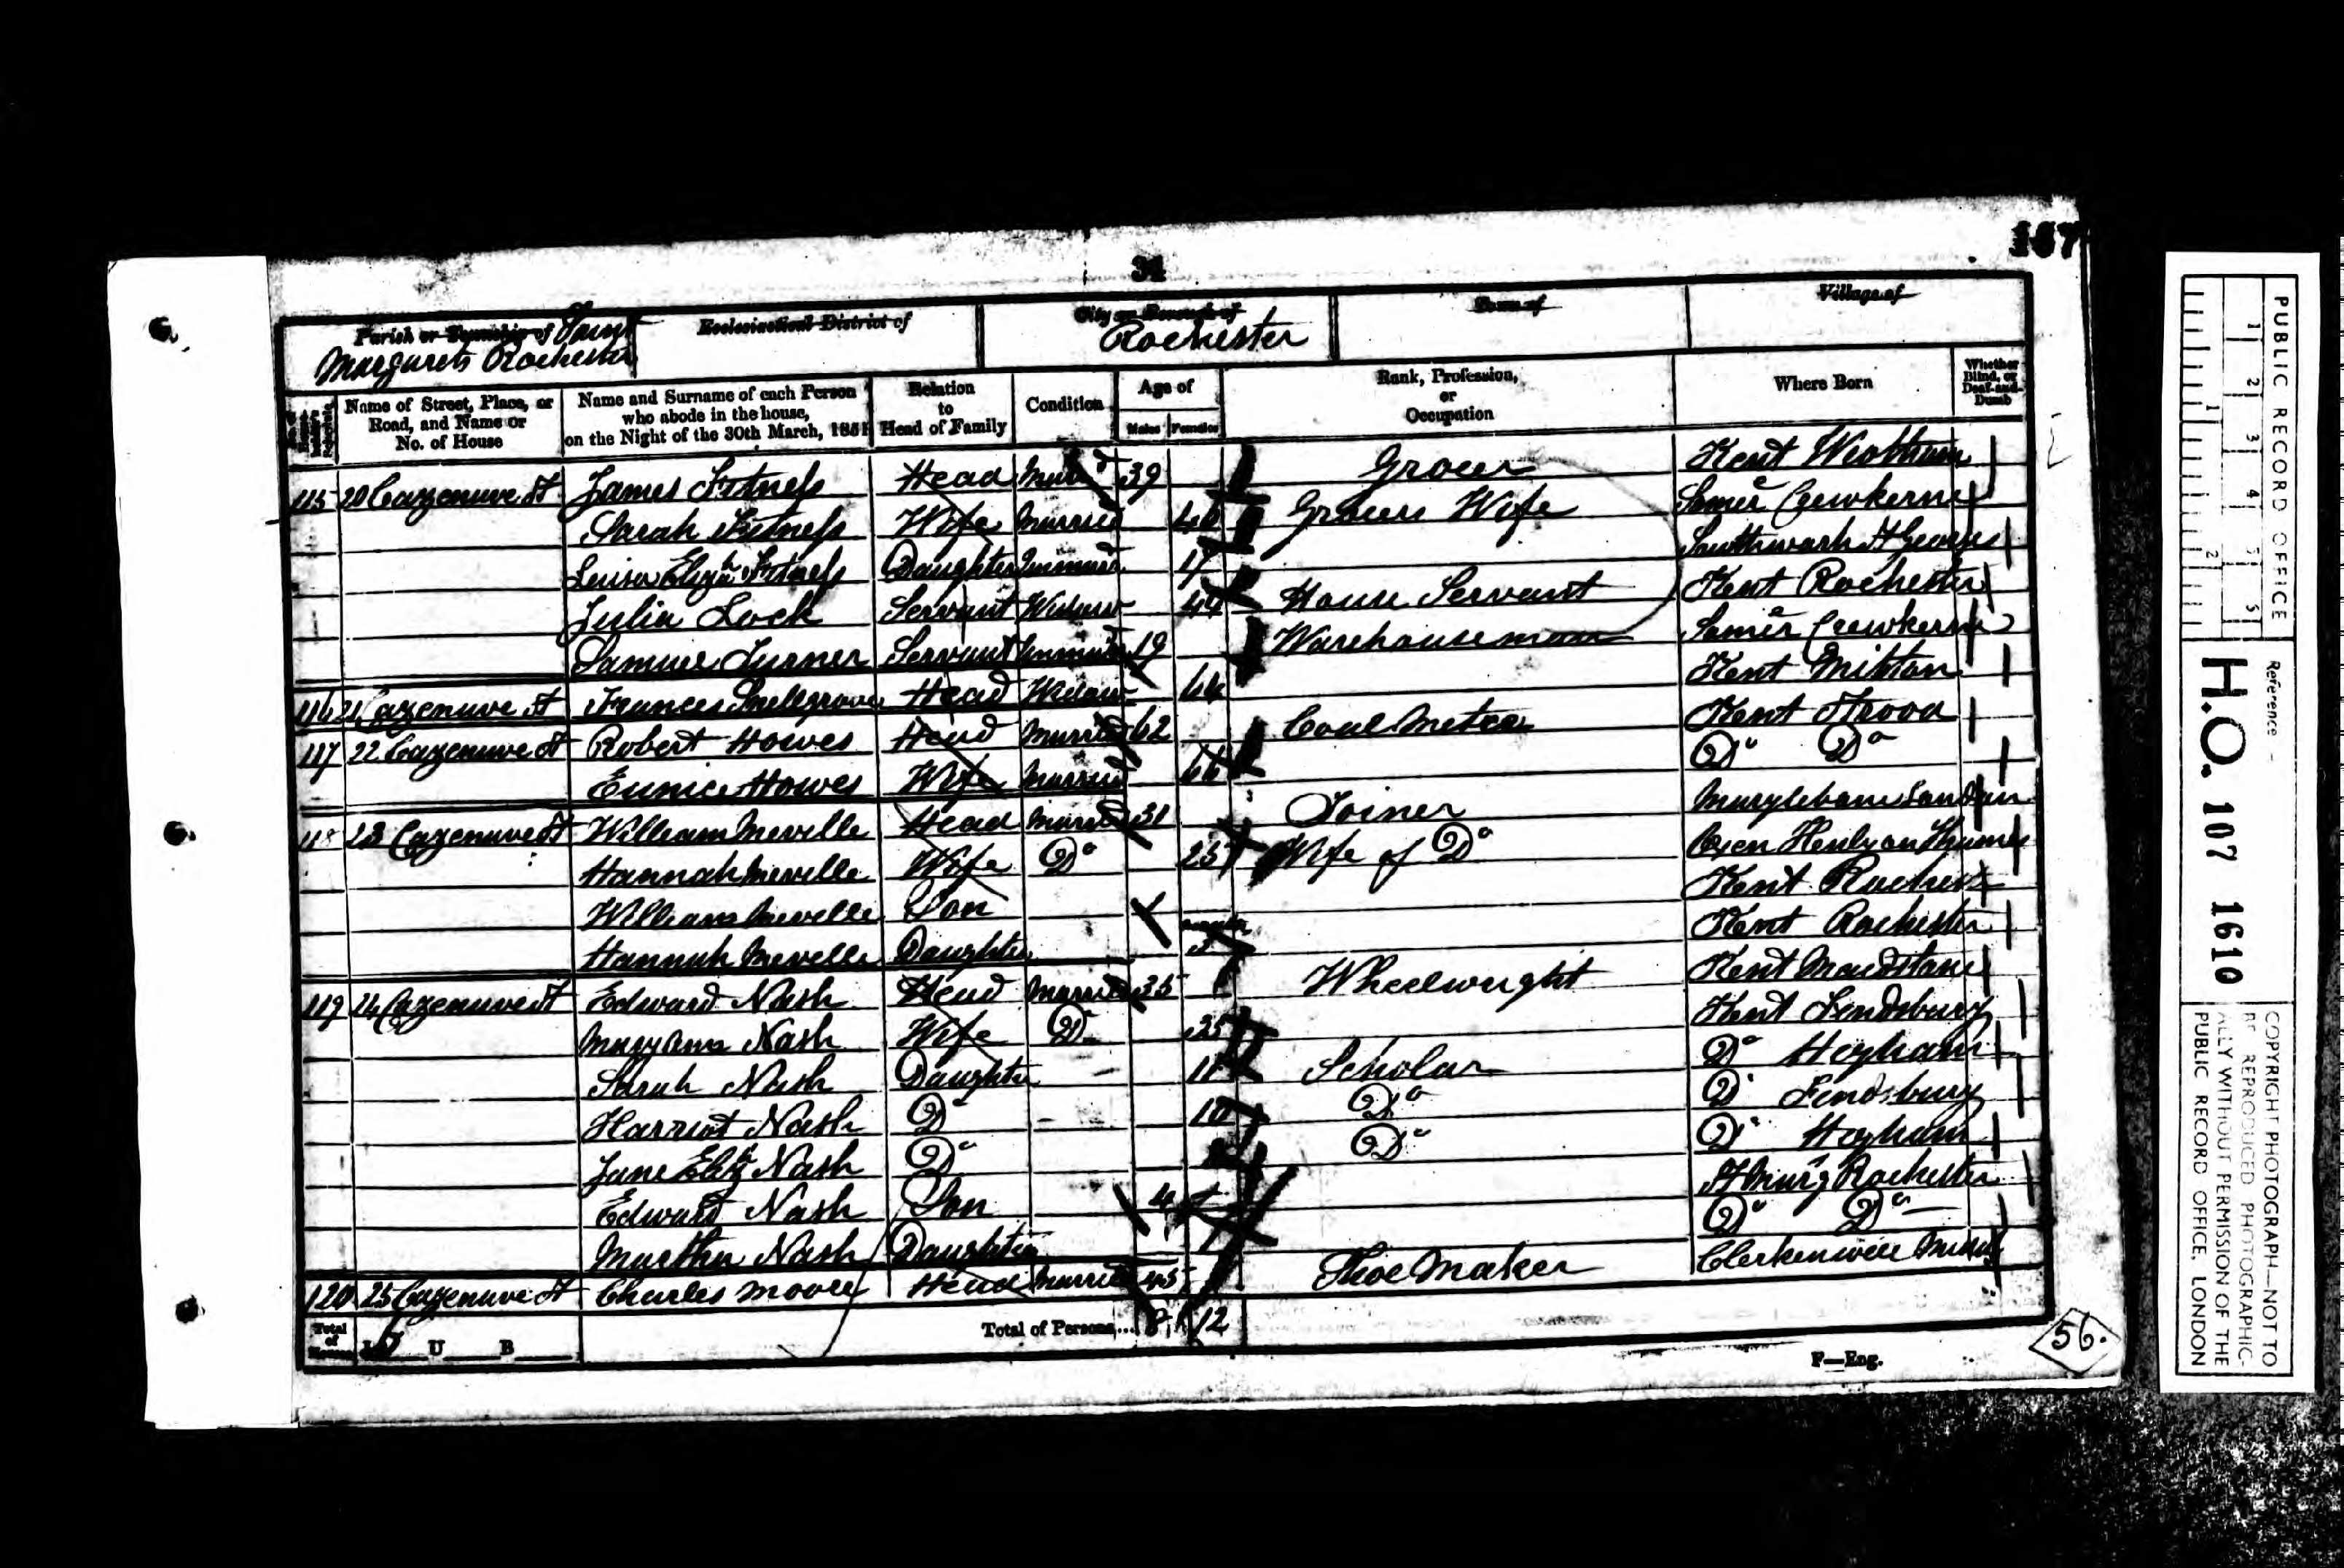 34
Parish or Township of Saint Margarets Rochester
Ecclesiastical District of
City or Borough of Rochester
Town of
Village of
Name of Street, Place, or Road, and Name or No. of House
Name and Surname of each Person who abode in the house, on the Night of the 30th March, 1851
Relation to Head of Family
Condition
Age of
Males Females
Rank, Profession, or Occupation
Where Born
Whether Blind, or Deaf-and-Dumb
115 20 Cazenuve St James Fitness Head 39 Grocer Kent Wrotham
Sarah Fitness Wife Married Grocers Wife Somer Crewkerne
Luisa Elizh Fitness Daughter 17 Southwark St Georges
Julia Lock Servant Widow 44 House Servant Kent Rochester
Samuel Turner Servant 19 Warehouseman Somer Crewkerne
116 21 Cazenuve St Frances Snellgrove Head Widow 64 Kent Milton
117 22 Cazenuve St Robert Howes Head Married 62 Coal Meter Kent Strood
Eunice Howes Wife Married 66 Do Do
118 23 Cazenuve St William Mevelle Head Married 31 Joiner Marylebone London
Hannah Mevelle Wife Do 25 Wife of Do Oxen Henly on Thames
William Mevelle Son Kent
Hannah Mevelle Daughter Kent Rochester
119 24 Cazenuve St Edward Nash Head Married 35 Wheelwright Kent Maidstone
Mary Ann Nash Wife Do 35 Kent Frindsbury
Sarah Nash Daughter 11 Scholar Do Higham
Harriot Nash Do 10 Do Do Findsbury
Jane Elizh Nash Do Do Do Higham
Edward Nash Son 4 St Marg Rochester
Martha Nash Daughter Do Do
120 25 Cazenuve St Charles Moore Head Married 45 Shoe Maker Clerkenwell
Total of Houses U B Total of Persons... 8 12
F—Eng.
56.
PUBLIC RECORD OFFICE
1 2 3 4 5
1 2
Reference -
H.O. 107 1610
COPYRIGHT PHOTOGRAPH—NOT TO
BE REPRODUCED PHOTOGRAPHIC-
ALLY WITHOUT PERMISSION OF THE
PUBLIC RECORD OFFICE, LONDON